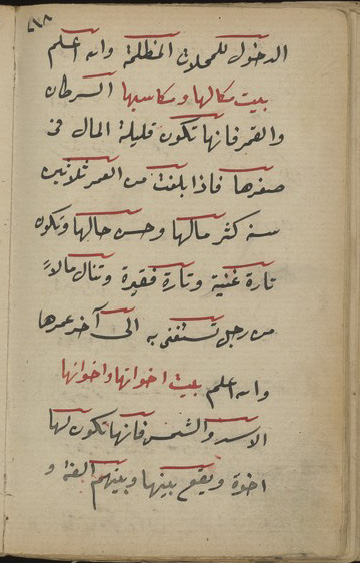 ٤١٨
الدخول للمحلات المظلمة والله اعلم
بيت مالها ومكاسبها السرطان
والقمر فانها تكون قليلة المال في
صغرها فاذا بلغت من العمر ثلاثين
سنه كثر مالها وحسن حالها وتكون
تارة غنية وتارة فقيرة وتنال مالاً
من رجل تستغنى به الى آخر عمرها
والله اعلم بيت اخوانها واخواتها
الاسد والشمس فانها تكون لها
اخوة ويقع بينها وبينهم الفة و